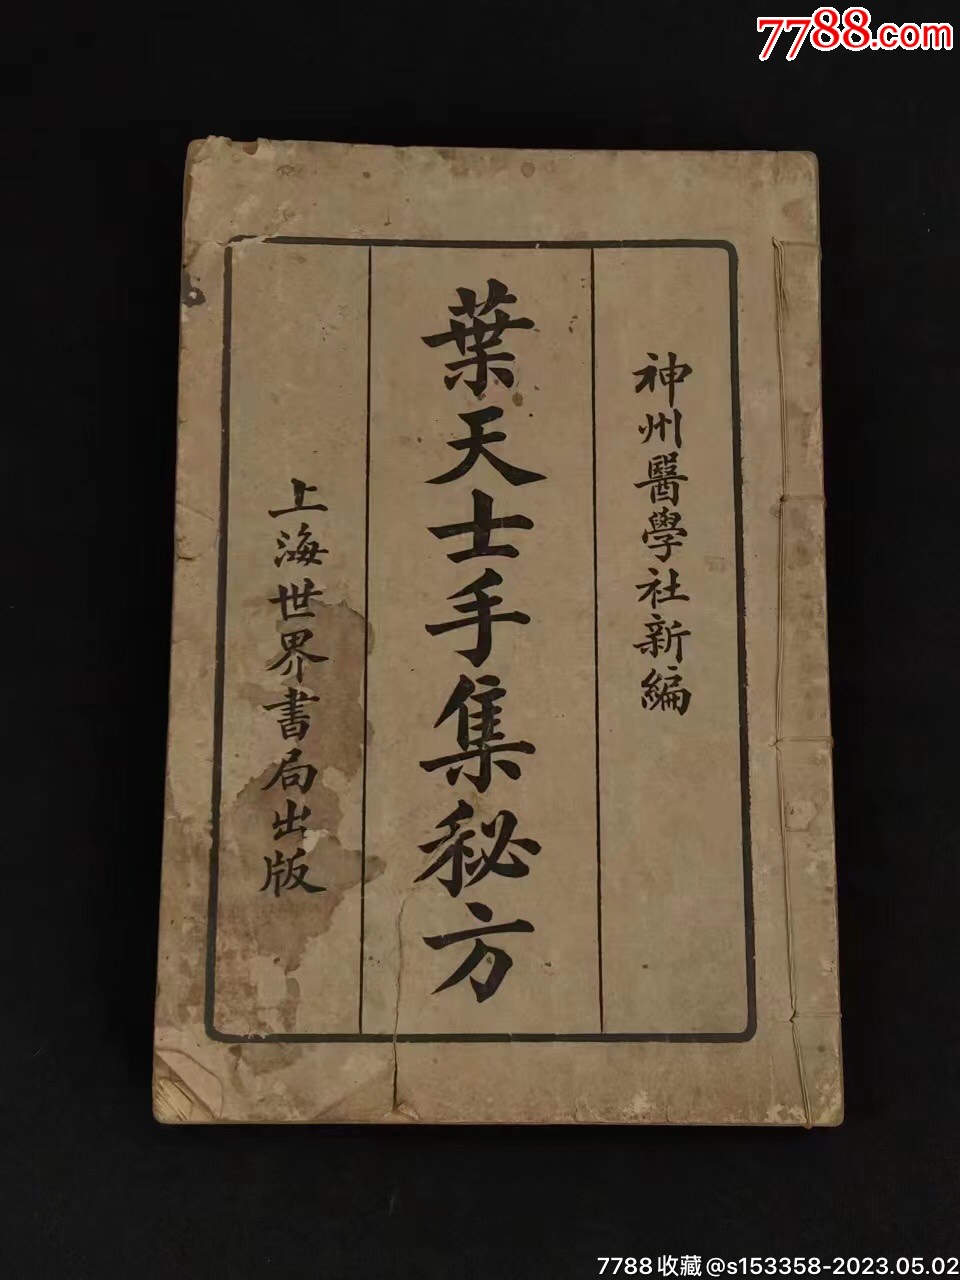 7788.com
神州醫學社新編
葉天士手集秘方
上海世界書局出版
7788收藏@s153358-2023.05.02